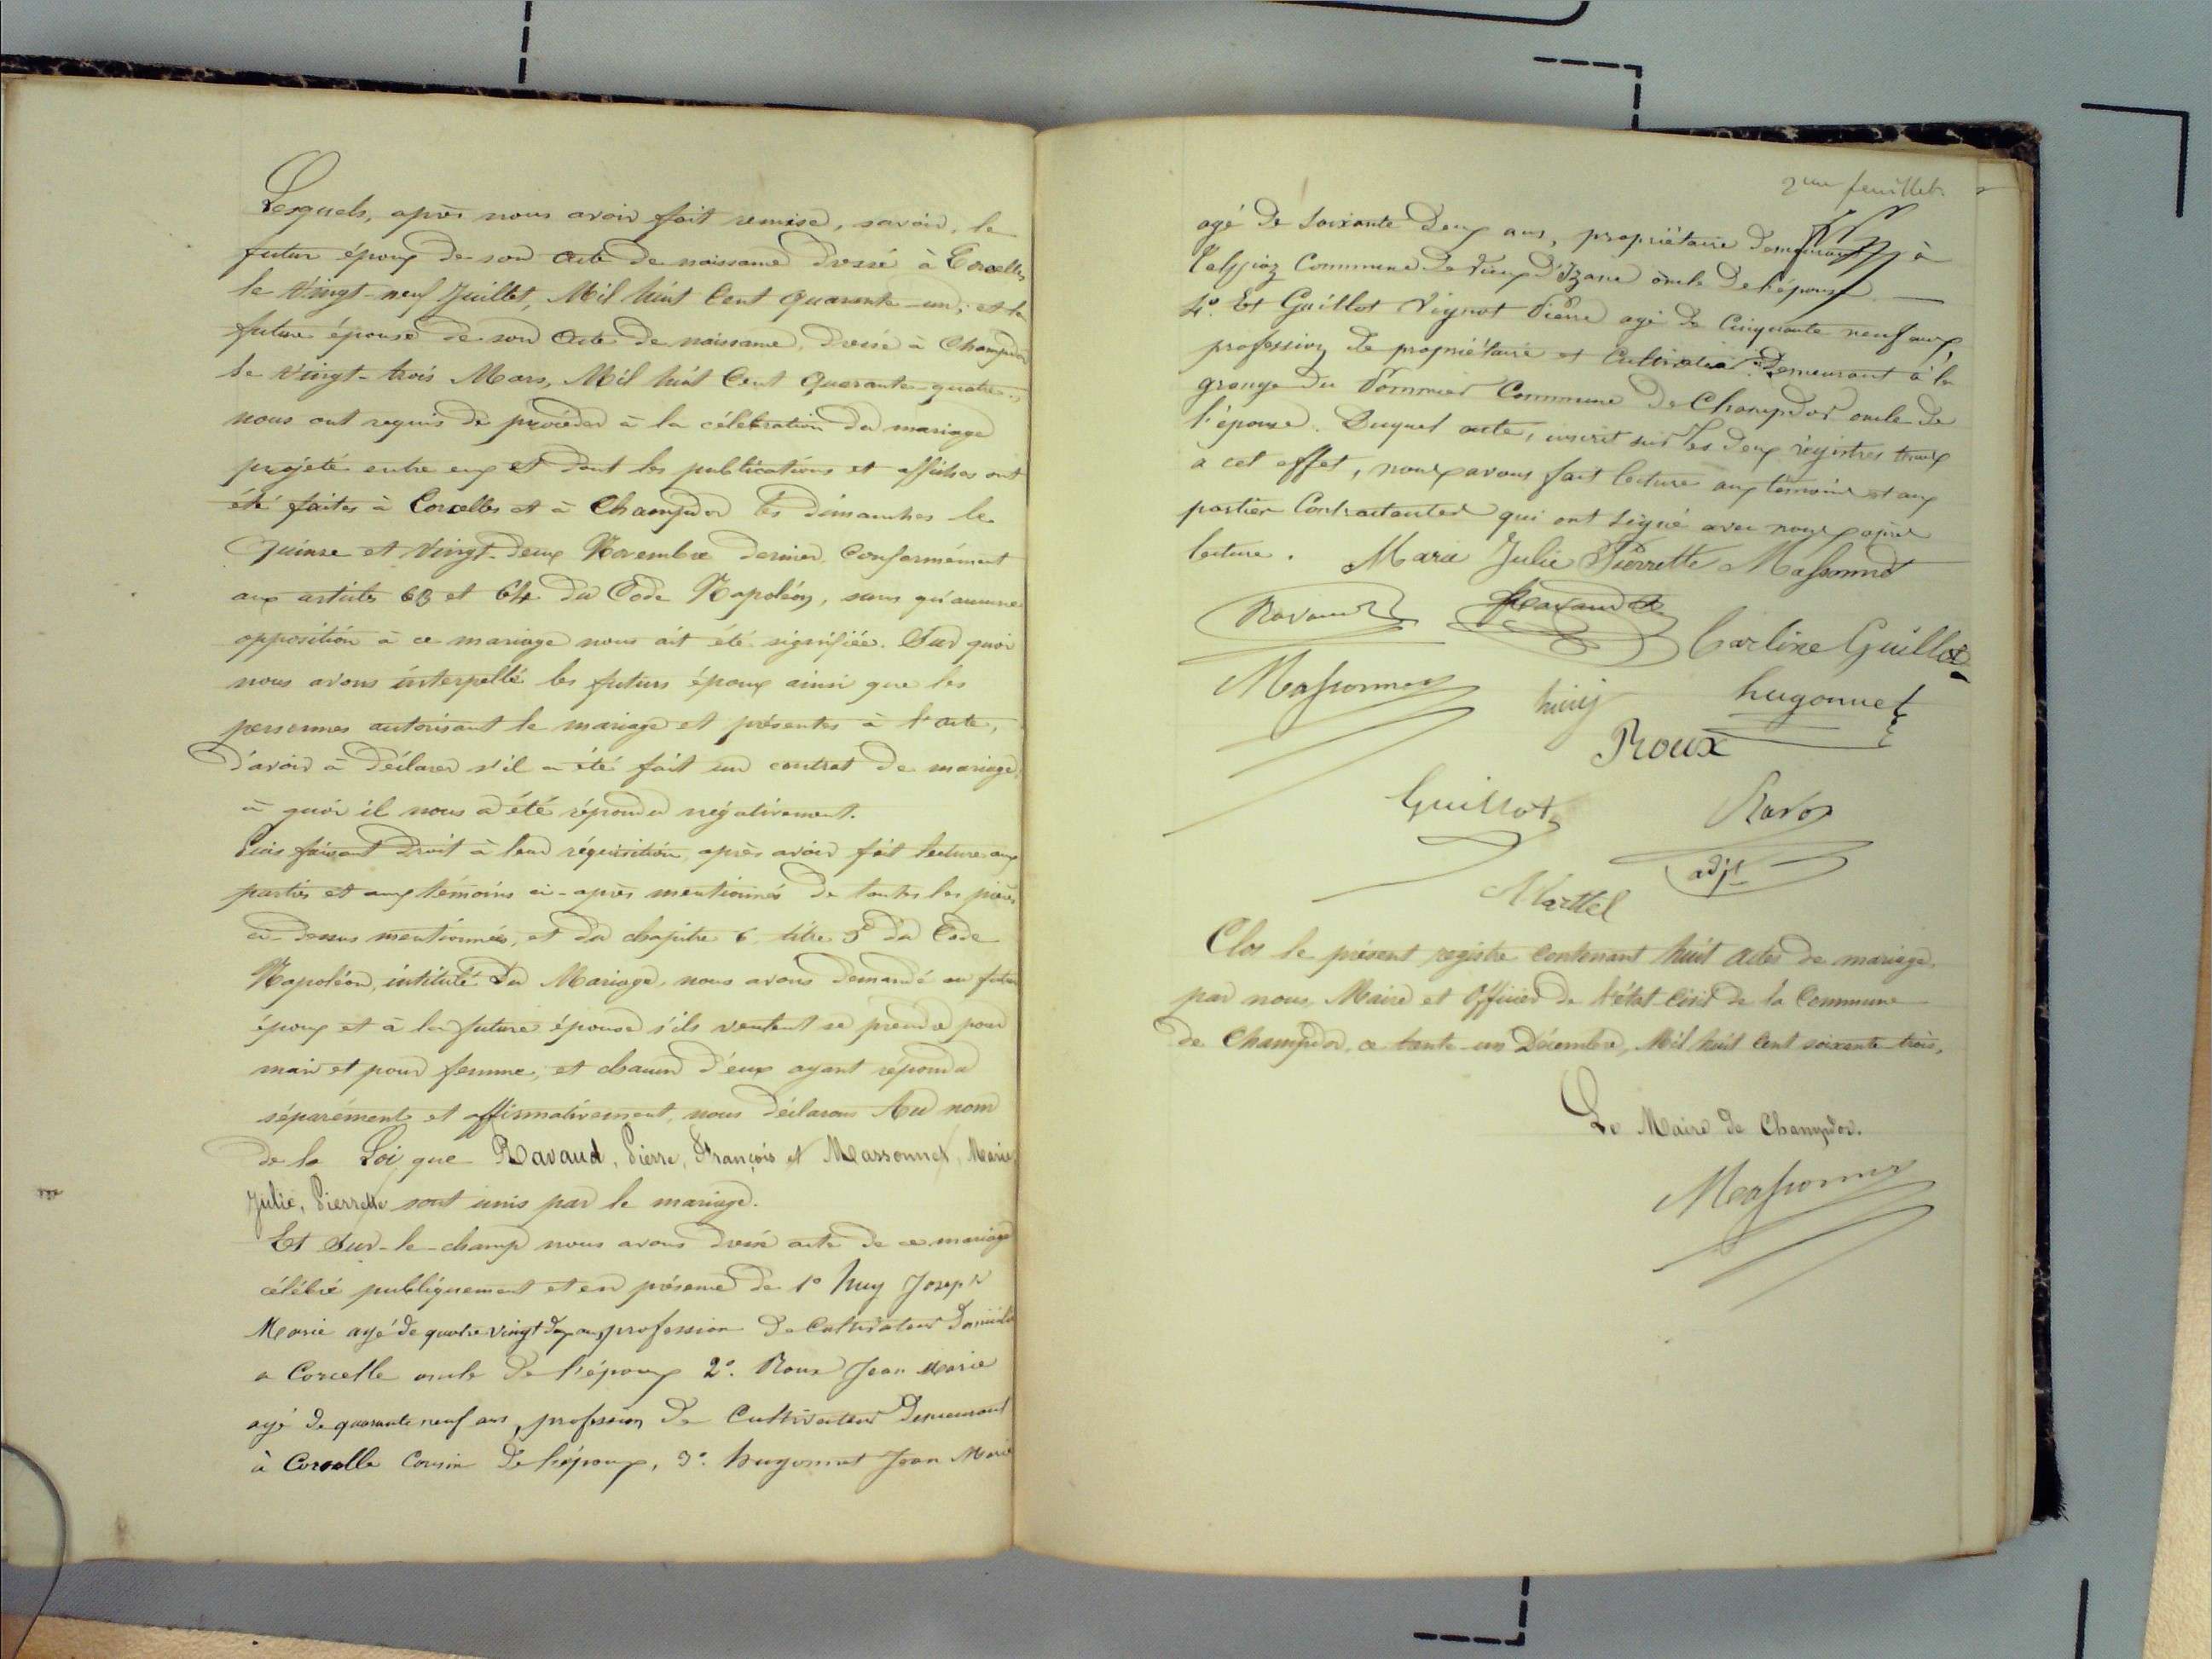 Lesquels, après nous avoir fait remise, savoir, le
futur époux de son acte de naissance dressé à Corcelles
le Vingt-neuf Juillet, Mil huit Cent quarante-un; et la
future épouse de son Acte de naissance, dressé à Champdor
le Vingt-trois Mars, Mil huit Cent Quarante-quatre,
nous ont requis de procéder à la célébration du mariage
projeté entre eux et dont les publications et affiches ont
été faites à Corcelles et à Champdor les dimanches le
Quinze et Vingt-deux Novembre dernier, Conformément
aux articles 63 et 64 du Code Napoléon, sans qu'aucune
opposition à ce mariage nous ait été signifiée. Sur quoi
nous avons interpellé les futurs époux ainsi que les
personnes autorisant le mariage et présentes à l'acte,
d'avoir à déclarer s'il a été fait un contrat de mariage,
à quoi il nous a été répondu négativement.
Puis faisant droit à leur réquisition, après avoir fait lecture aux
parties et aux témoins ci-après mentionnés de toutes les pièces
ci-dessus mentionnées, et du chapitre 6, titre 5 du Code
Napoléon, intitulé Du Mariage, nous avons demandé au futur
époux et à la future épouse s'ils veulent se prendre pour
mari et pour femme, et chacun d'eux ayant répondu
séparément et affirmativement, nous déclarons Au nom
de la Loi, que Ravaud, Pierre, François et Massonnet, Marie,
Julie, Pierrette sont unis par le mariage.
Et Sur-le-champ nous avons dressé acte de ce mariage
célébré publiquement et en présence de 1° huy Joseph
Marie agé de quatre vingt deux ans, profession de Cultivateur domicilié
a Corcelle oncle de l'époux 2°. Roux Jean Marie
agé de quarante neuf ans, profession de Cultivateur demeurant
à Corcelle Cousin de l'époux, 3°. hugonnet Jean Marie
2me feuillet
agé de soixante deux ans, propriétaire demeurant à
Commune de Vieux d'Izane oncle de l'épouse
4°. Et Guillot Vignot Pierre agé de Cinquante neuf ans,
profession de propriétaire et Cultivateur demeurant à la
grange du Pommier Commune de Champdor oncle de
l'épouse. Duquel acte, inscrit sur les deux régistres
a cet effet, nous avons fait lecture aux témoins et aux
parties Contractantes qui ont signé avec nous après
lecture. Marie Julie Pierrette Massonnet
Ravaud Ravaud
Carline Guillot
Massonnet huy hugonnet
Roux
Guillot Ravo
adjt
Marttel
Clos le présent registre contenant huit actes de mariage,
par nous, Maire et Officier de l'état-Civil de la Commune
de Champdor, ce trente-un Décembre, Mil huit Cent soixante-trois,
Le Maire de Champdor.
Massonnet